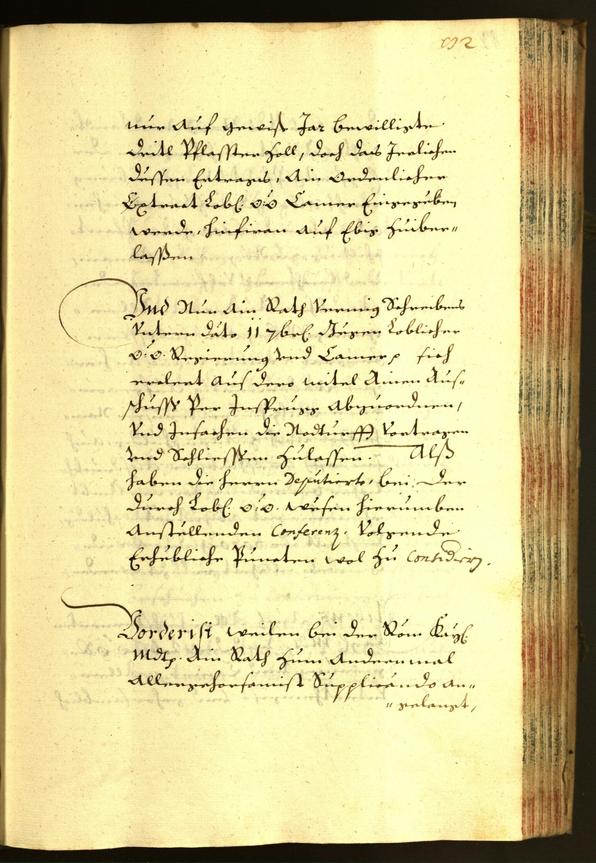 192
nur auf gewiß Jar bewilligte
dritl Pflasster Zoll, doch das Jerlichen
dessen Ertrags, ain Ordenlicher
Extract Lobl: O:Ö: Camer Eingegeben
werde, hinfiran auf Ebig zuiber-
lassen
Und Nun Ain Rath vermüg Schreibens
untern dato 11 7bris. gegen Loblicher
O:Ö: Regierung und Camer, sich
erclert aus dero mitel Ainen Aus-
schuss per Insprugg Abzuordnen,
und In sachen die Notturfft vortragen
und Schliessen zulassen. Alß
haben die herrn Deputierte, bei der
durch Lobl: O:Ö: wesen hierumben
Anstellenden Conferenz. Volgende
Erhebliche Puncten wol zu Considirirn.
Vorderist weilen bei der Röm Kayl:
Mdt: Ain Rath zum Andermal
Allergehorsamist Supplicando an-
-gelangt,